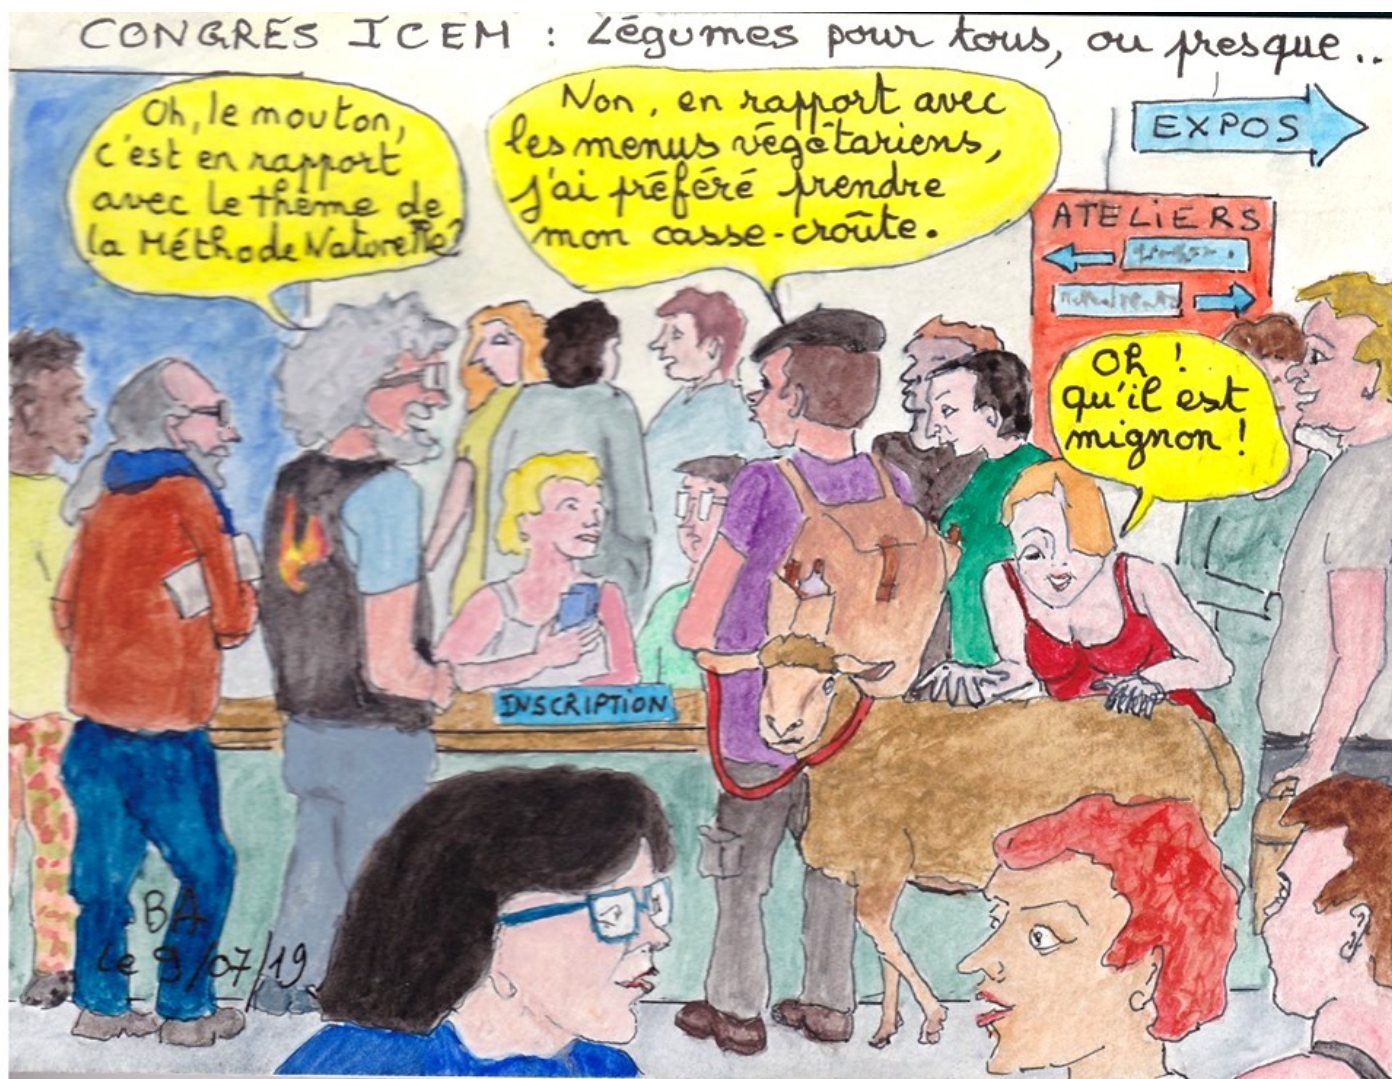 CONGRÈS ICEM : Légumes pour tous, ou presque ..
Oh, le mouton,
c'est en rapport
avec le thème de
la Méthode Naturelle?
Non, en rapport avec
les menus végétariens,
j'ai préféré prendre
mon casse-croûte.
EXPOS
ATELIERS
Oh !
qu'il est
mignon !
INSCRIPTION
BA
le 9/07/19